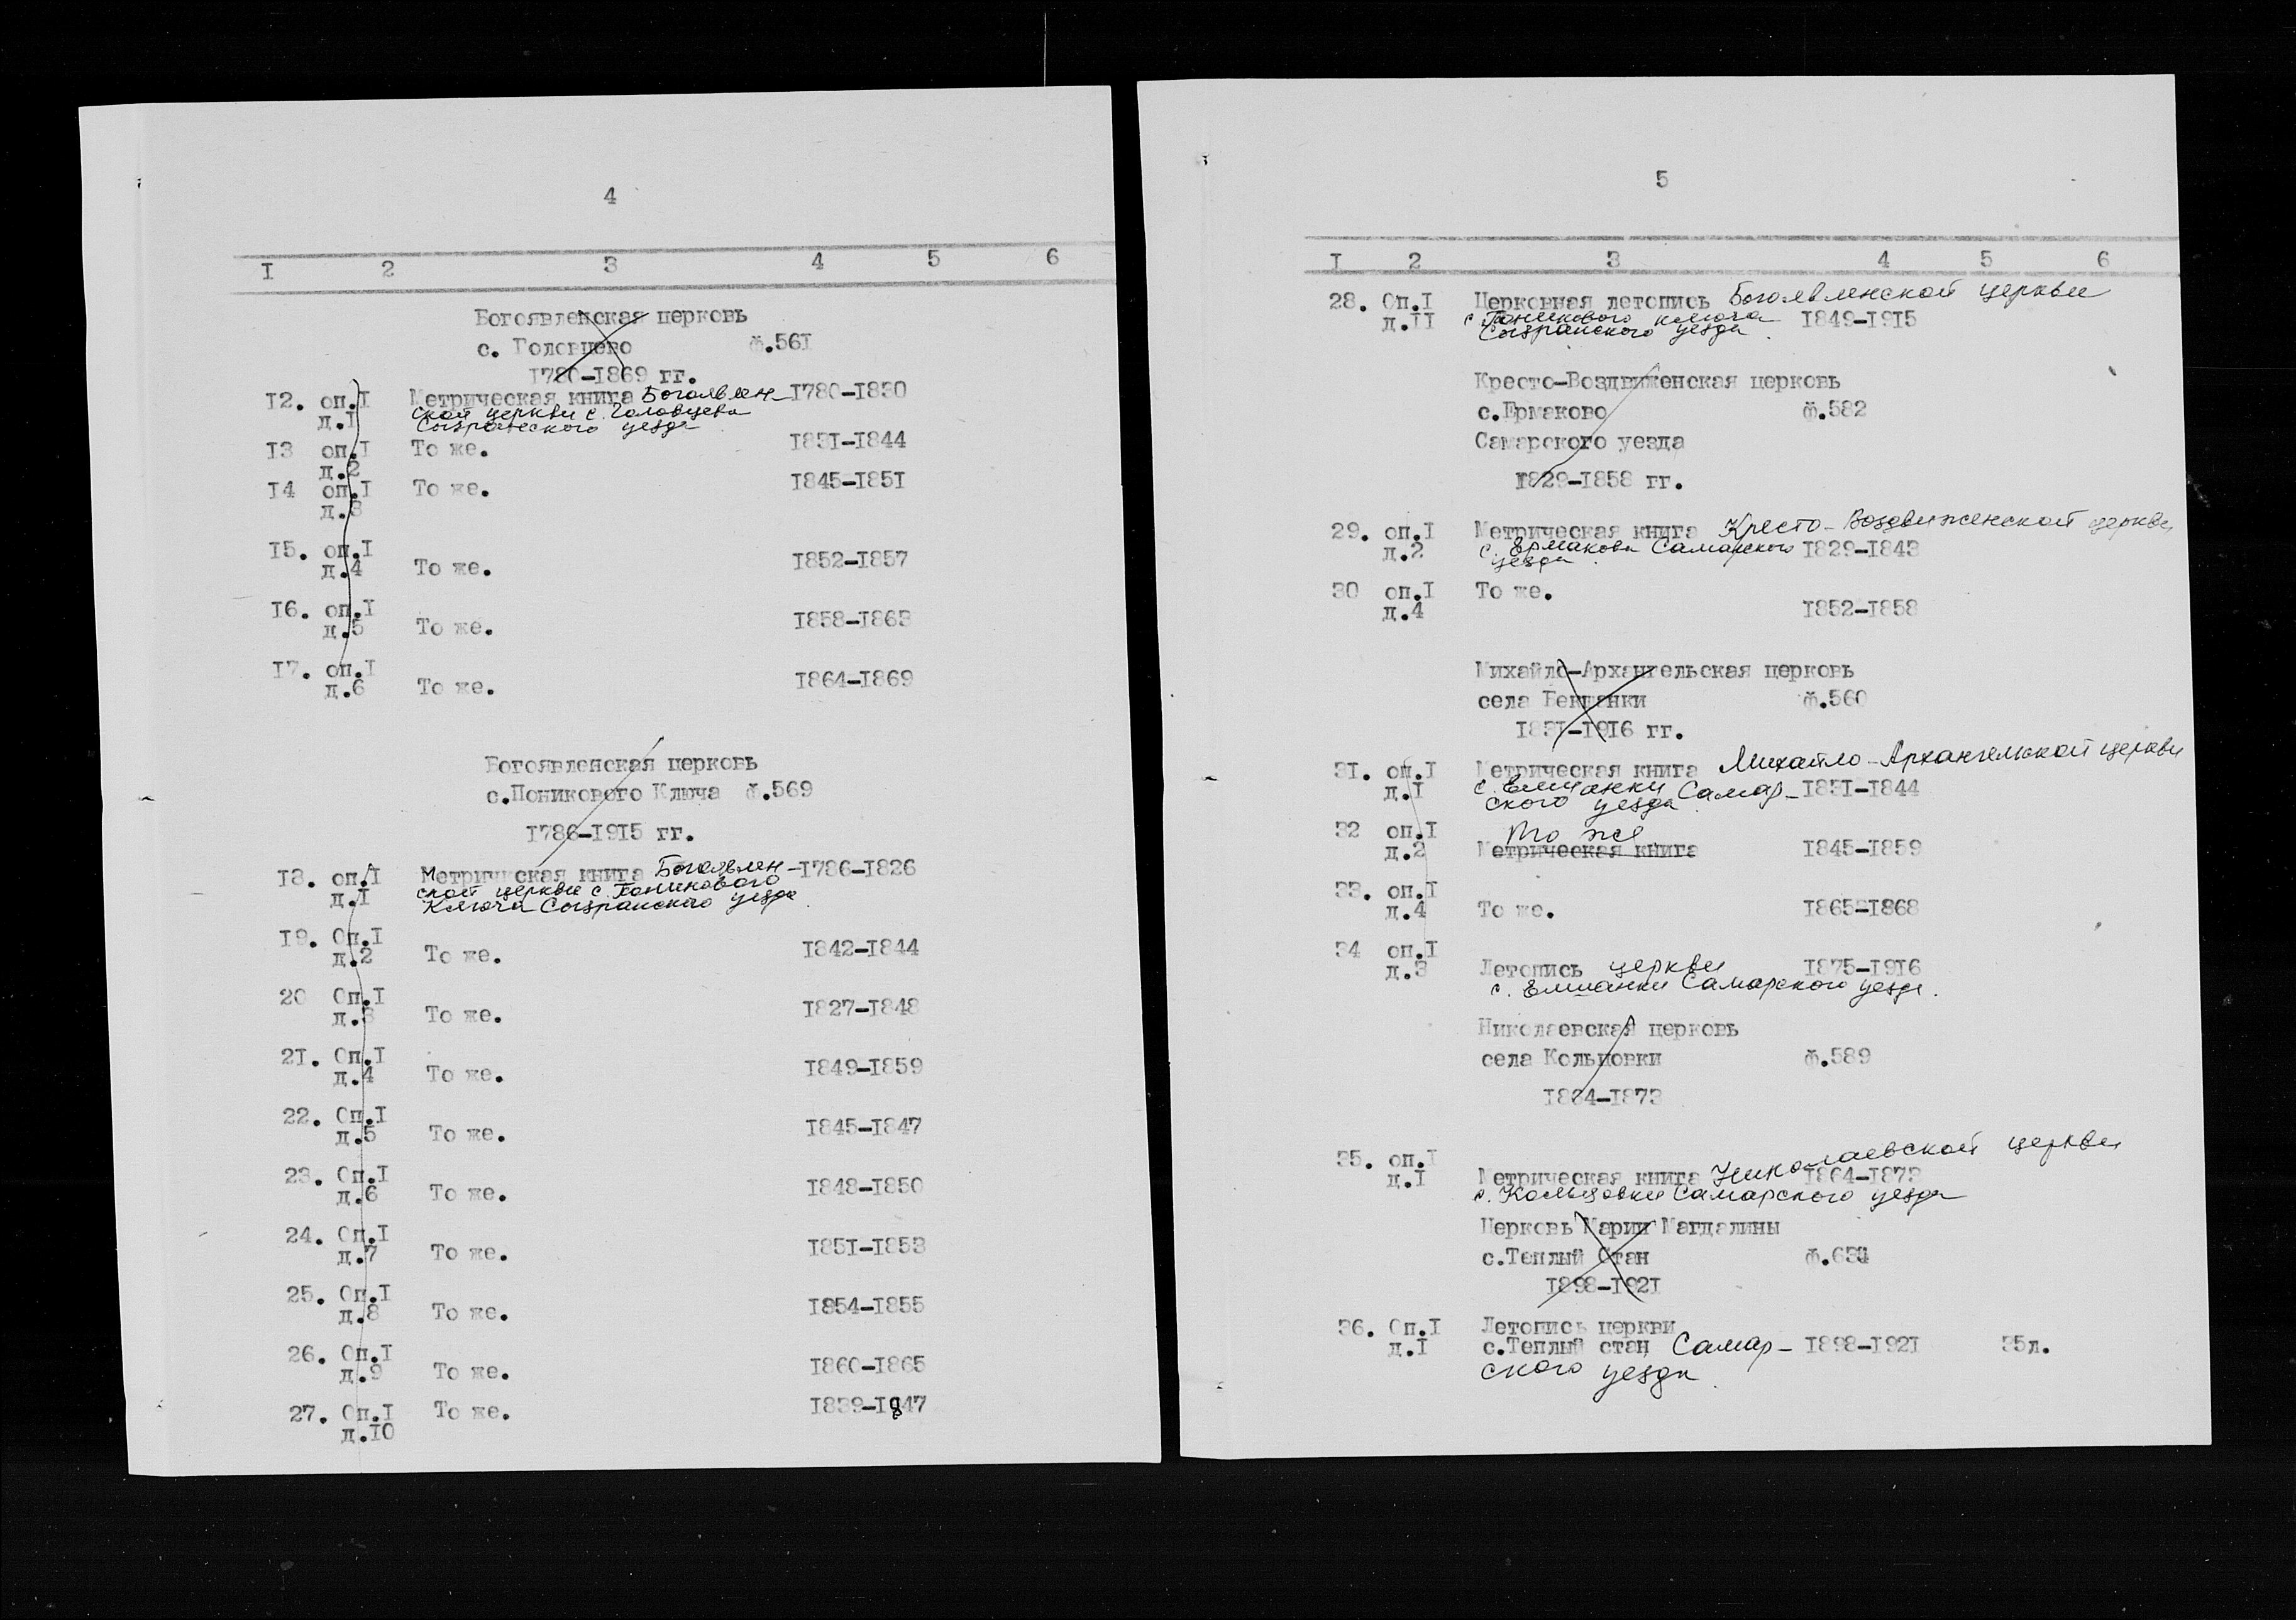 4
I 2 3 4 5 6
Богоявленская церковь
с. Головцево ф.561
1780-1869 гг.
I2. оп.I Метрическая книга Богоявлен- I780-I830
д.I ской церкви с. Головцева
Сызранского уезда
I3 оп.I То же. I831-I844
д.2
I4 оп.I То же. I845-I851
д.3
I5. оп.I
д.4 То же. I852-I857
I6. оп.I
д.5 То же. I858-I863
I7. оп.I
д.6 То же. I864-I869
Богоявленская церковь
с.Поникового Ключа ф.569
I786-I915 гг.
I8. оп.I Метрическая книга Богоявлен- I786-I826
д.I ской церкви с. Поникового
Ключа Сызранского уезда
I9. Оп.I
д.2 То же. I842-I844
20 Оп.I
д.3 То же. I827-I848
2I. Оп.I
д.4 То же. I849-I859
22. Оп.I
д.5 То же. I845-I847
23. Оп.I
д.6 То же. I848-I850
24. Оп.I
д.7 То же. I851-I853
25. Оп.I
д.8 То же. I854-I855
26. Оп.I
д.9 То же. I860-I865
27. Оп.I То же. I839-I847
д.I0
5
I 2 3 4 5 6
28. Оп.I Церковная летопись Богоявленской церкви
д.II с Поникового ключа I849-I9I5
Сызранского уезда.
Кресто-Воздвиженская церковь
с.Ермаково ф.582
Самарского уезда
I829-I858 гг.
29. оп.I Метрическая книга Кресто-Воздвиженской церкви
д.2 с. Ермакова Самарского I829-I843
уезда.
30 оп.I То же.
д.4 I852-I858
Михайло-Архангельская церковь
села ф.560
I83I-I9I6 гг.
3I. оп.I Метрическая книга Михайло-Архангельской церкви
д.I с. Елшанки Самар- I83I-I844
ского уезда.
32 оп.I То же.
д.2 Метрическая книга I845-I859
33. оп.I
д.4 То же. I865-I868
34 оп.I
д.3 Летопись церкви I875-I9I6
с. Елшанки Самарского уезда.
Николаевская церковь
села Кольцовки ф.589
I864-I873
35. оп.I
д.I Метрическая книга Николаевской церкви I864-I873
с. Кольцовки Самарского уезда
Церковь Марии Магдалины
с.Теплый Стан ф.634
I898-I92I
36. Оп.I Летопись церкви
д.I с.Теплый стан Самар- I898-I92I 35л.
ского уезда.